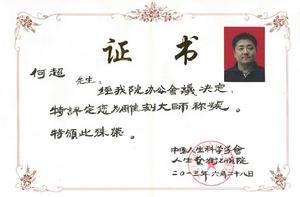 证书
何超 先生：
经我院办公会議决定，
特評定您为雕刻大师称號。
特頒此殊荣。
中国人生科学学会
人生艺術研究院
二〇一三年六月二十八日